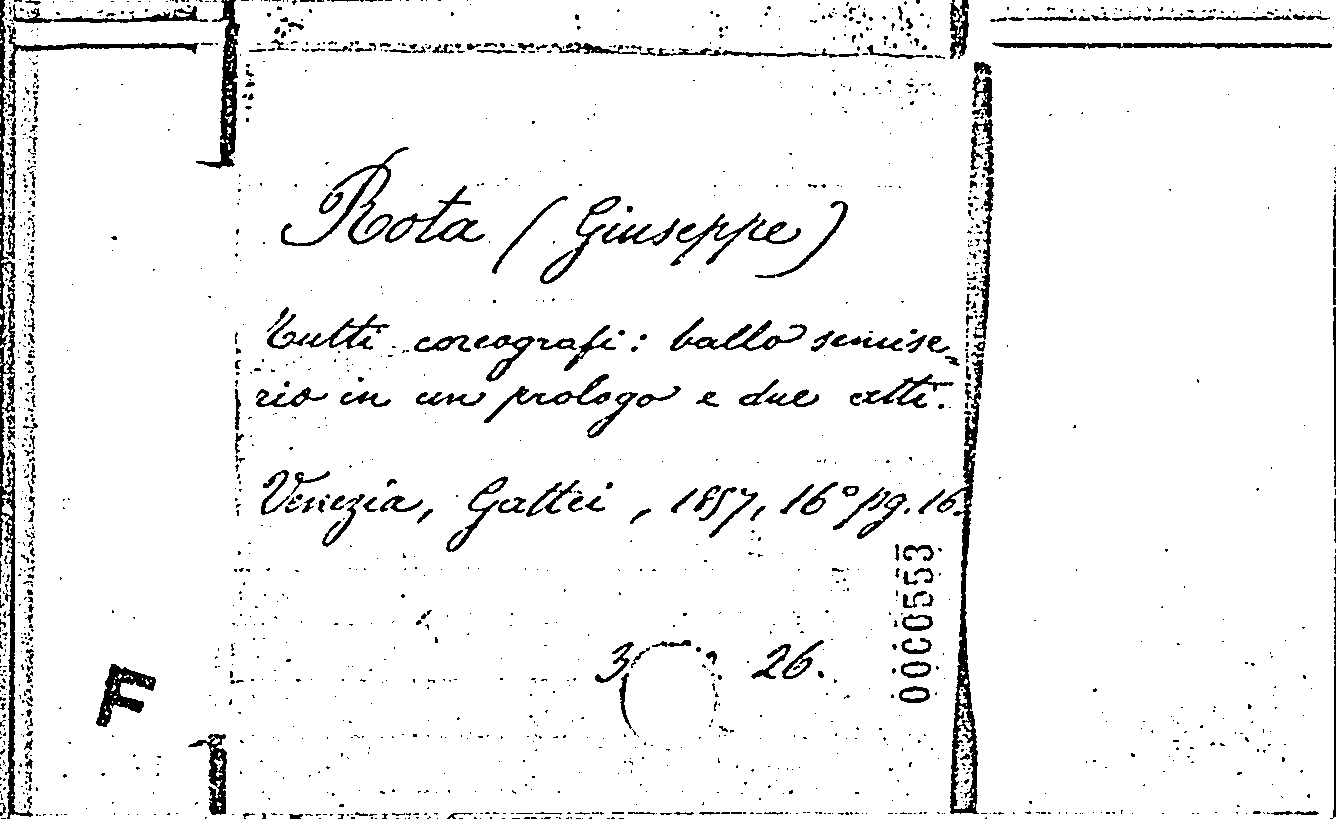 Rota (Giuseppe)
Tutti coreografi: ballo semise-
rio in un prologo e due atti.
Venezia, Gattei, 1857, 16° pg. 16.
3 26.
0000553
F